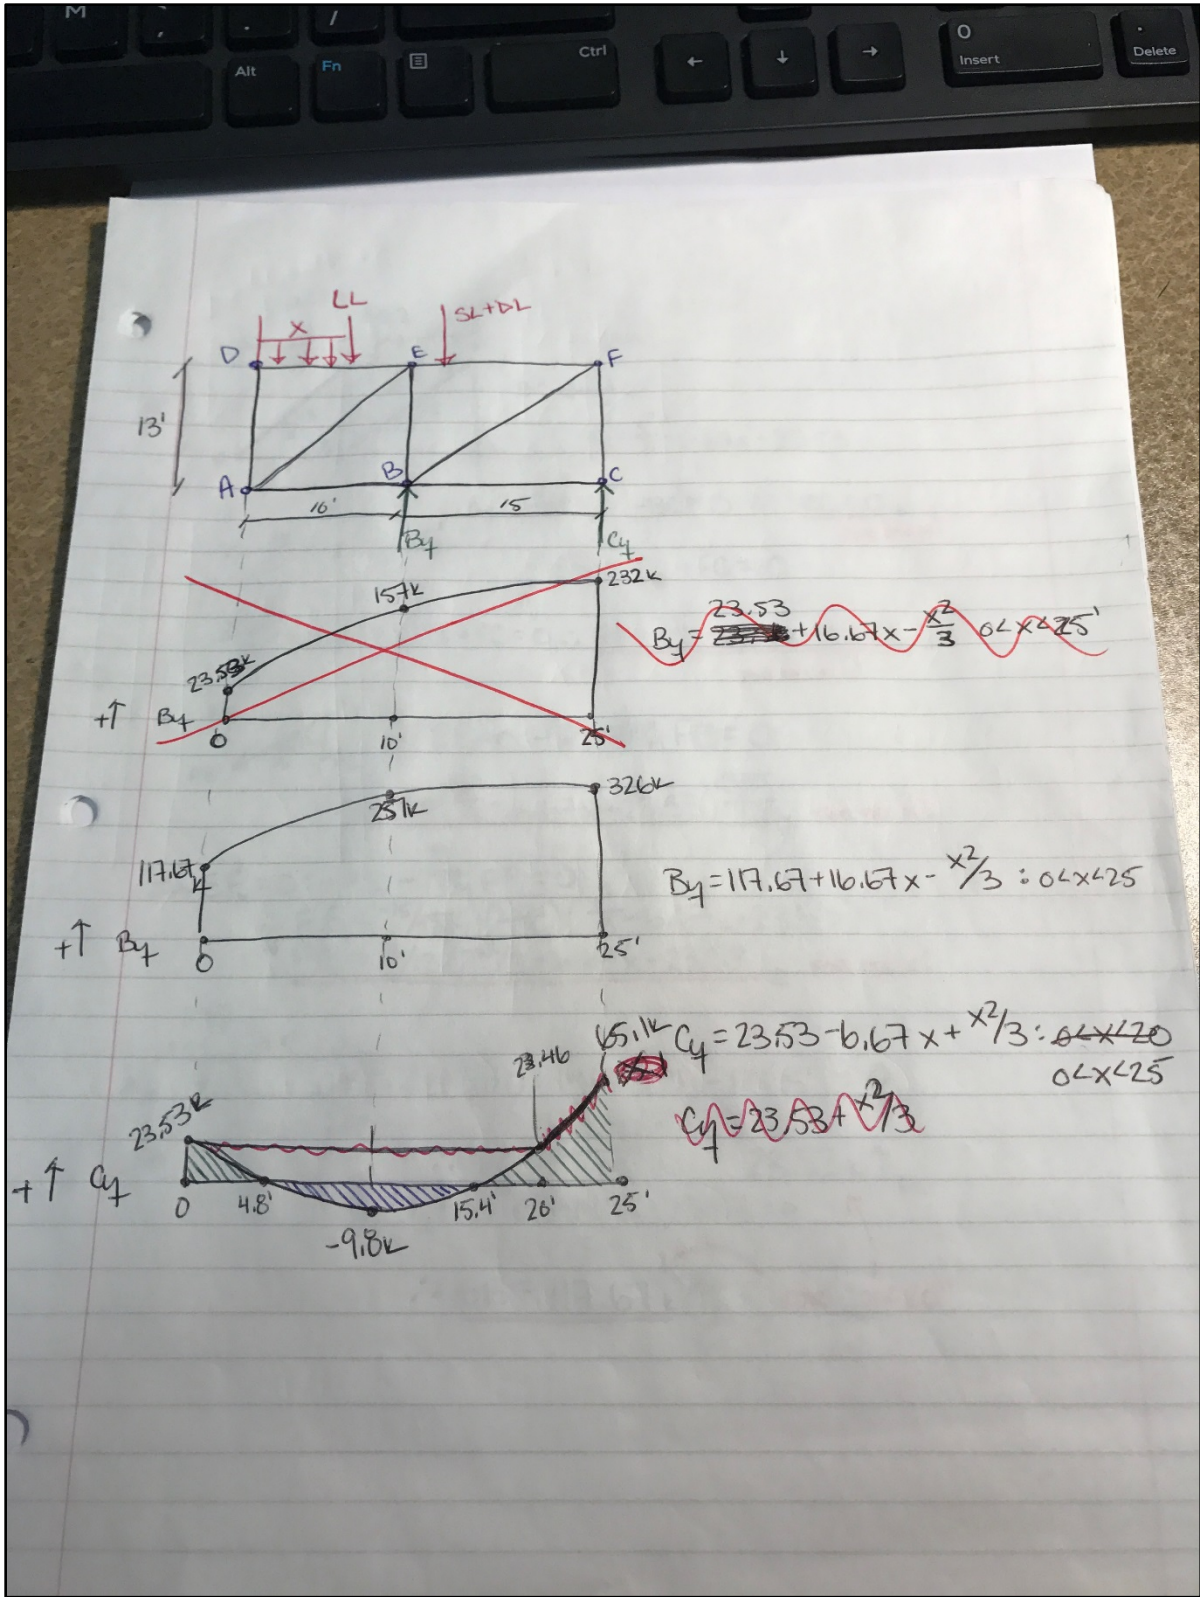 M
,
.
/
Alt
Fn
Ctrl
←
↓
→
O
Insert
.
Delete
LL
SL+DL
X
D
E
F
13'
A
B
C
10'
15
By
Cy
157k
232k
23.53k
+↑ By
0
10'
25'
23.53
By = +16.67x - x²/3 0<x<25'
251k
326k
117.67k
By=117.67+16.67x - x²/3 : 0<x<25
+↑ By
0
10'
25'
65.1k
23.46
Cy = 23.53-6.67x + x²/3 : 0<x<20
0<x<25
Cy = 23.53+ x²/3
23.53k
+↑ Cy
0
4.8'
15.4'
20'
25'
-9.8k